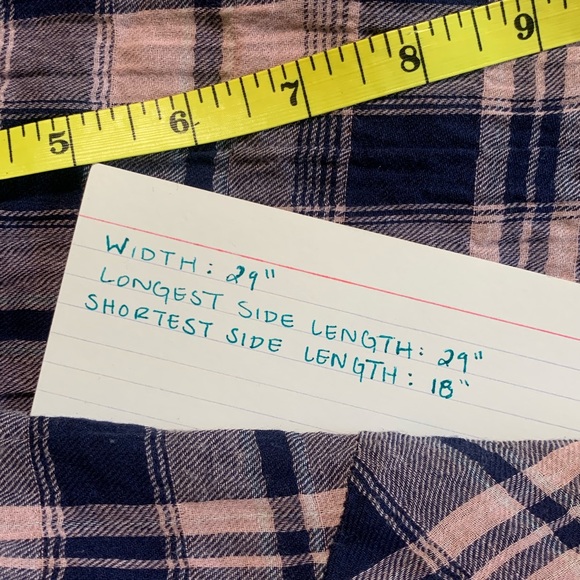 5 6 7 8 9
WIDTH: 29"
LONGEST SIDE LENGTH: 29"
SHORTEST SIDE LENGTH: 18"